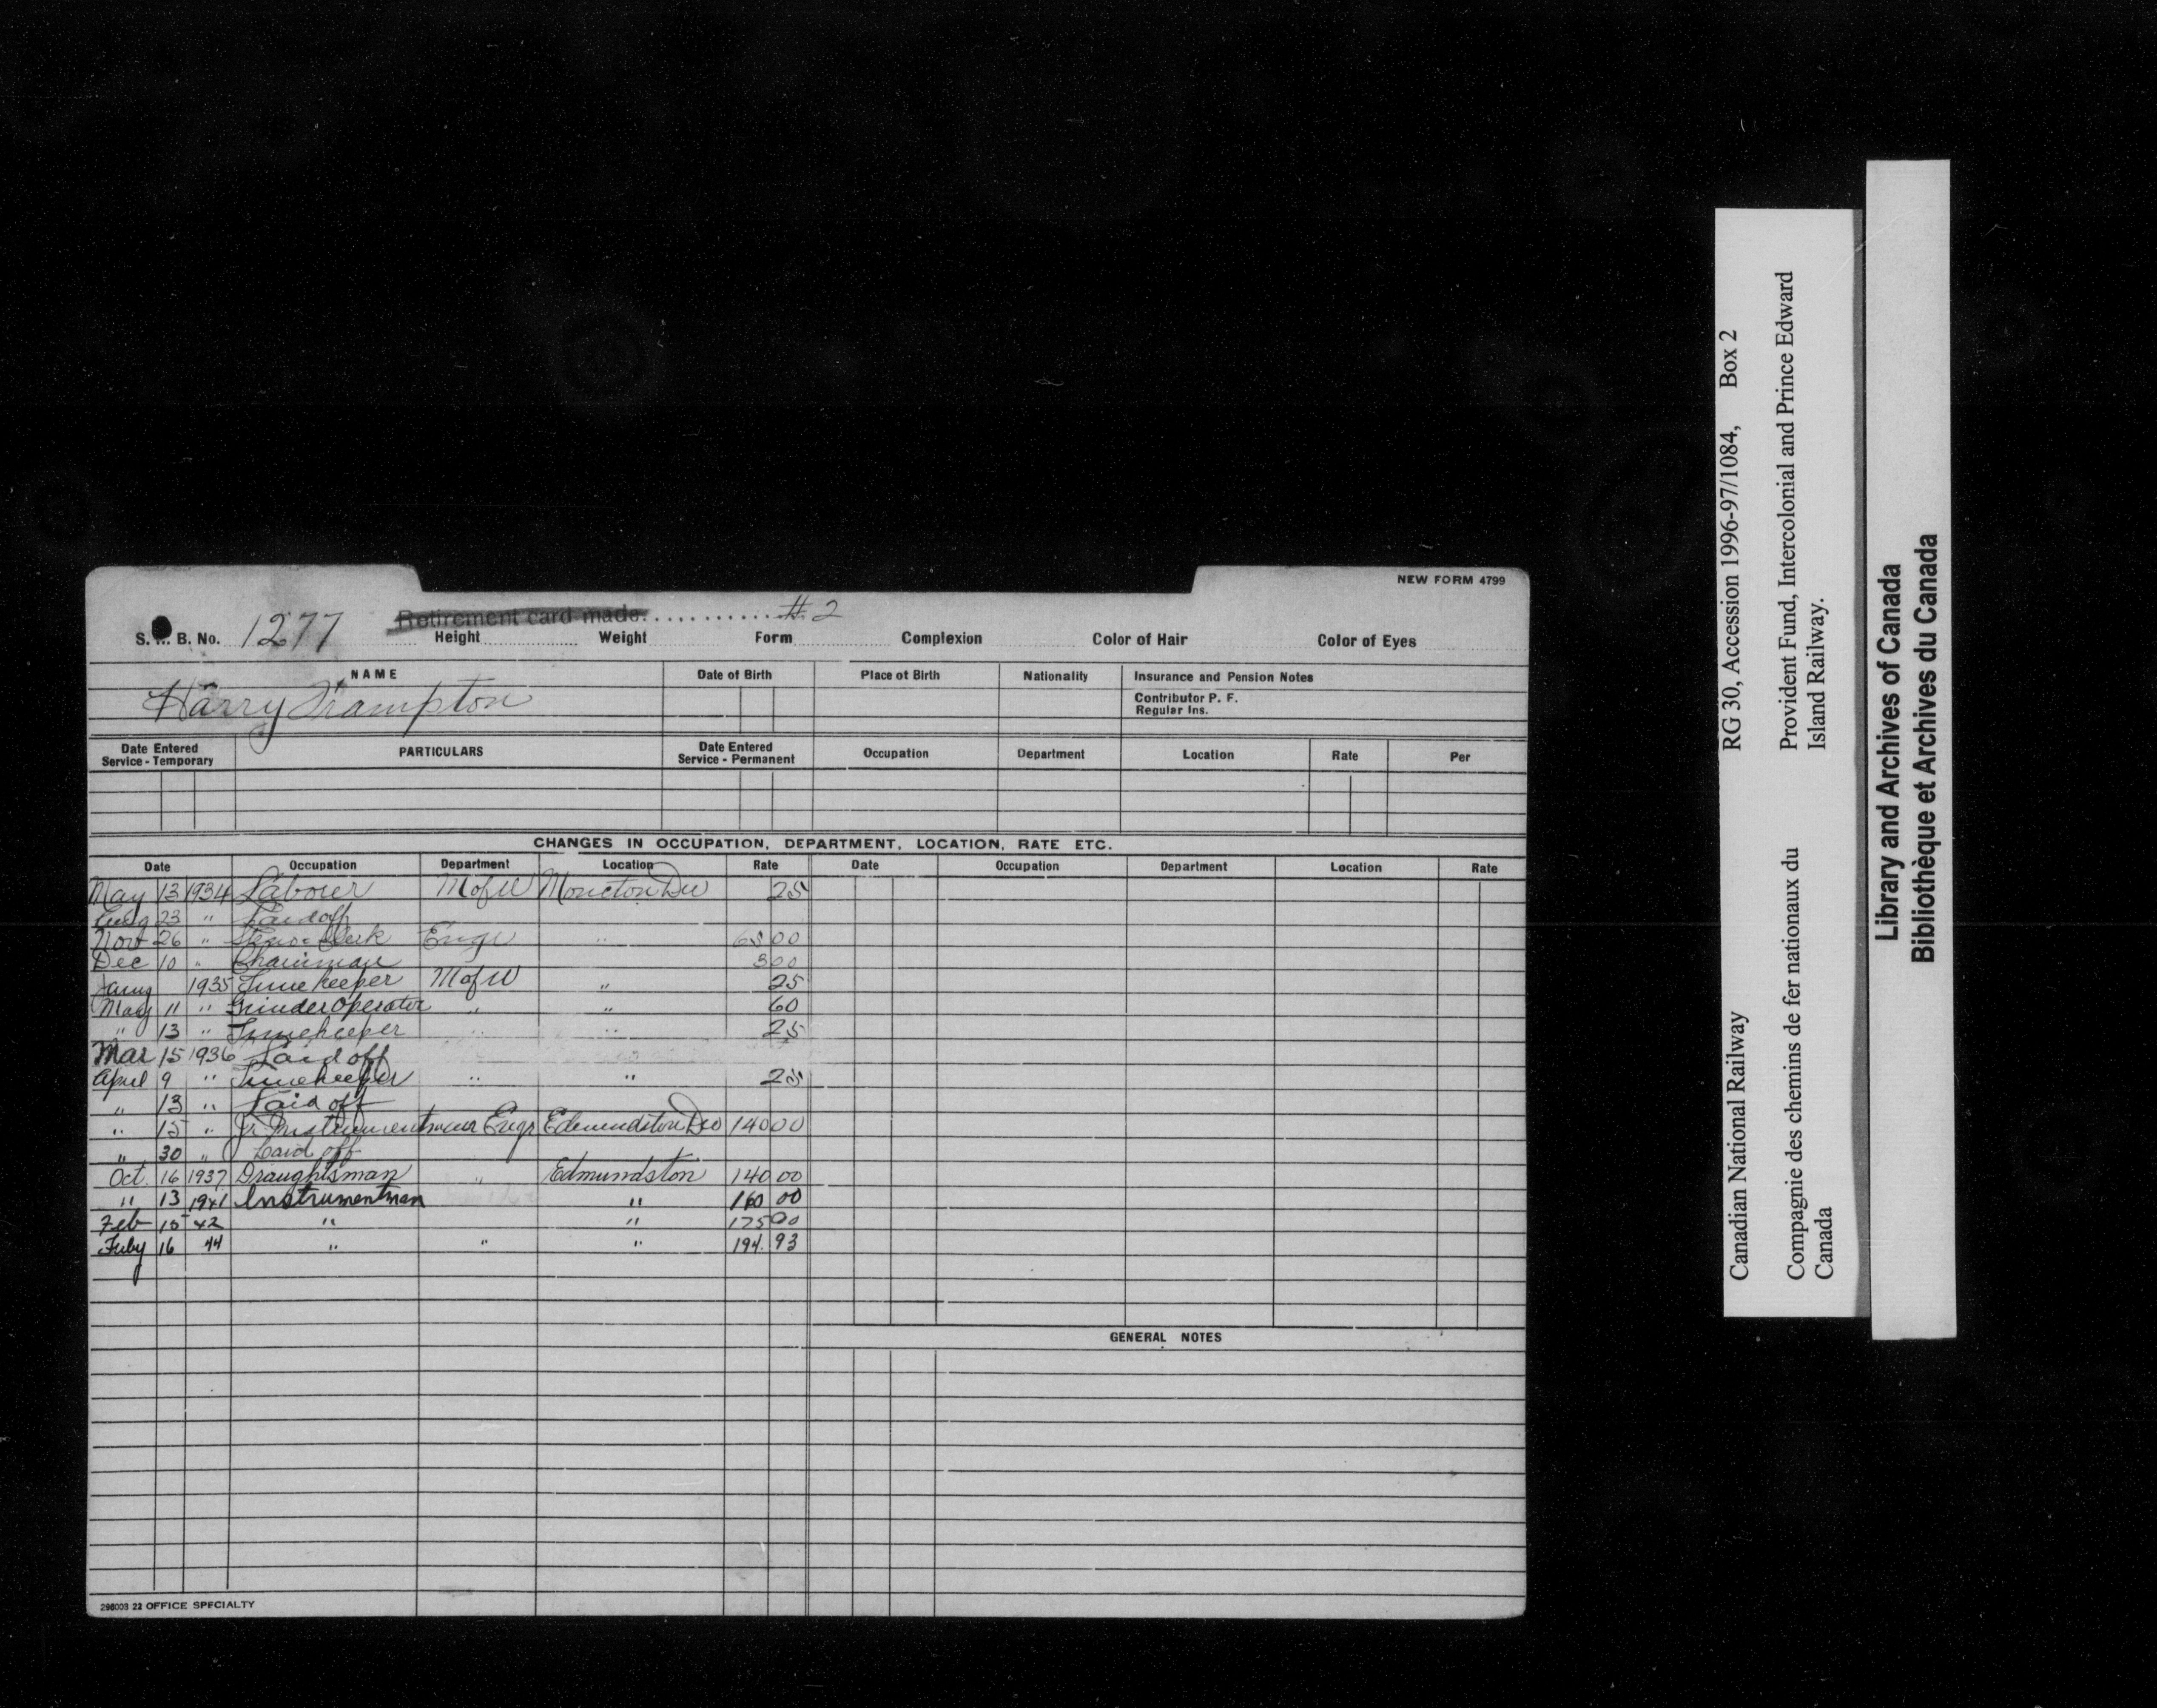 NEW FORM 4799
Retirement card made. . . . . . . . . . . . # 2
S. B. No. 1277 Height Weight Form Complexion Color of Hair Color of Eyes
NAME Date of Birth Place of Birth Nationality Insurance and Pension Notes
Contributor P. F.
Regular Ins.
Harry Frampton
Date Entered Service - Temporary PARTICULARS Date Entered Service - Permanent Occupation Department Location Rate Per
CHANGES IN OCCUPATION, DEPARTMENT, LOCATION, RATE ETC.
Date Occupation Department Location Rate Date Occupation Department Location Rate
May 13 1934 Labourer M of W Moncton Div 25
Aug 23 " Laid off
Nov 26 " Steno-Clerk Engr " 00
Dec 10 " Chainman 300
Jany 1935 Timekeeper M of W " 25
May 11 " Grinder Operator " " 60
" 13 " Timekeeper " " 25
Mar 15 1936 Laid off
April 9 " Timekeeper " " 25
" 13 " Laid off
" 15 " Jr. Instrumentman Engr. Edmundston Div 140 00
" 30 " Laid off
Oct. 16 1937 Draughtsman " Edmundston 140 00
" 13 1941 Instrumentman " 160 00
Feb 15 42 " " 175 00
July 16 44 " " " 194. 93
GENERAL NOTES
298003 22 OFFICE SPECIALTY
Canadian National Railway RG 30, Accession 1996-97/1084, Box 2
Compagnie des chemins de fer nationaux du Provident Fund, Intercolonial and Prince Edward
Canada Island Railway.
Library and Archives of Canada
Bibliothèque et Archives du Canada